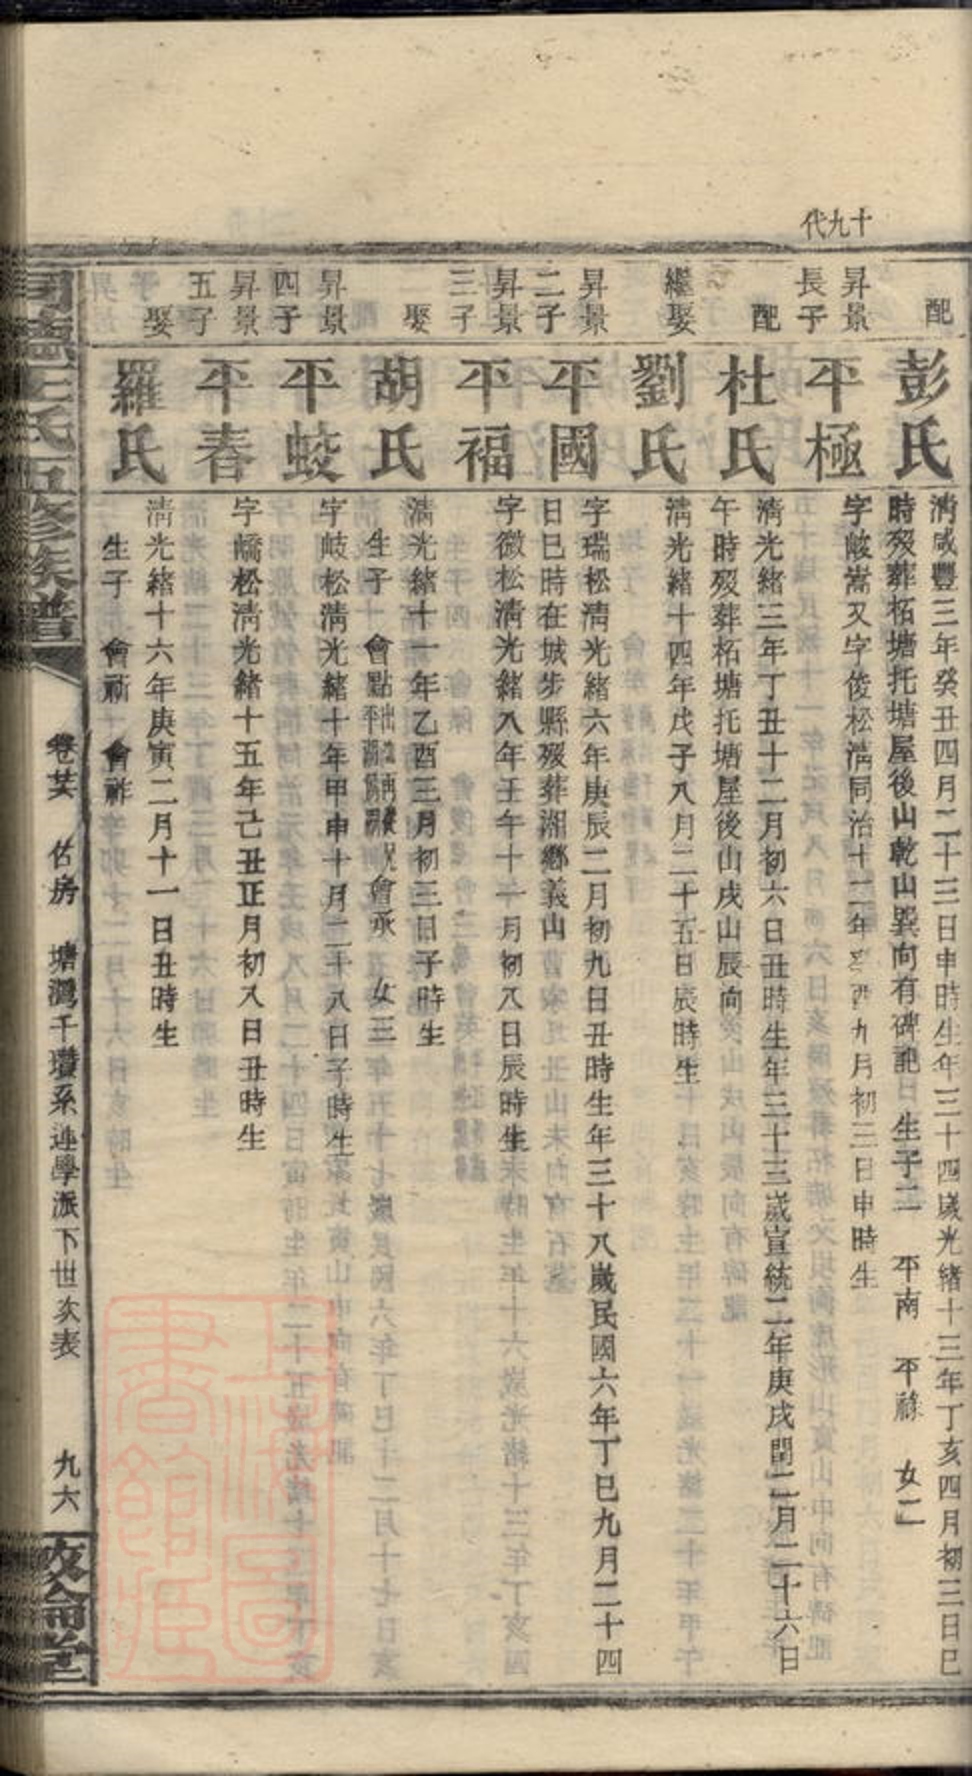 十九代
配
彭氏
清咸豐三年癸丑四月二十三日申時生年三十四歲光緒十三年丁亥四月初三日巳
時歿葬柘塘托塘屋後山乾山巽向有碑誌 生子二 平南 平祿 女二
昇景長子
平極
字峻嵩又字俊松清同治十二年癸酉九月初三日申時生
配
杜氏
清光緒三年丁丑十二月初六日丑時生年三十三歲宣統二年庚戌閏二月二十六日
午時歿葬柘塘托塘屋後山戌山辰向
繼娶
劉氏
清光緒十四年戊子八月二十五日辰時生
昇景二子
平國
字瑞松清光緒六年庚辰二月初九日丑時生年三十八歲民國六年丁巳九月二十四
日巳時在城步縣歿葬湘鄉義山
昇景三子
平福
字微松清光緒八年壬午十一月初八日辰時生
娶
胡氏
清光緒十一年乙酉三月初三日子時生
生子 會點 會承 女三
昇景四子
平蛟
字岐松清光緒十年甲申十月二十八日子時生
昇景五子
平春
字嶠松清光緒十五年己丑正月初八日丑時生
娶
羅氏
清光緒十六年庚寅二月十一日丑時生
生子 會新 會祚
王氏五修族譜
卷廿六 佑房 塘灣千瓚系連學派下世次表
九六
敦倫堂
上海圖書館藏